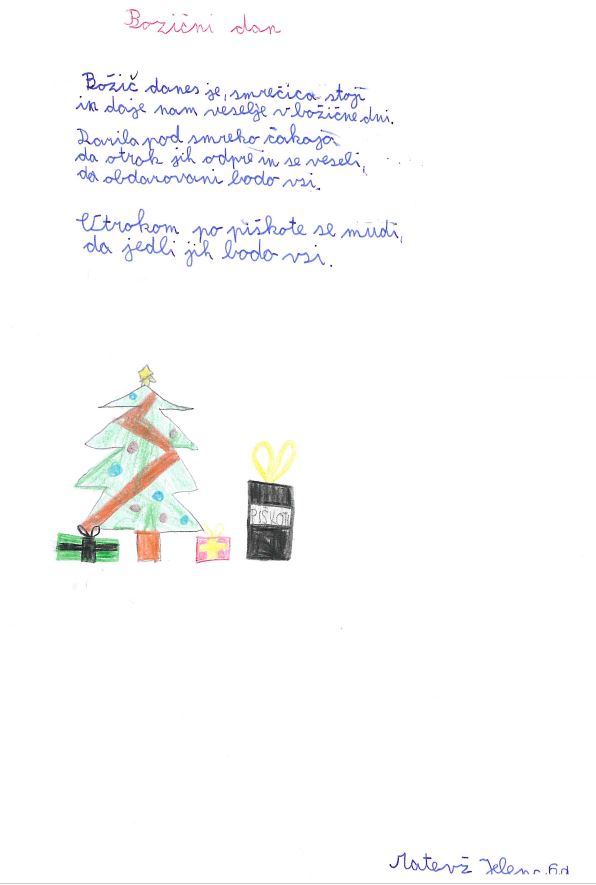 Božični dan
Božič danes je, smrečica stoji
in daje nam veselje v božične dni.
Darila pod smreko čakajo
da otrok jih odpre in se veseli,
da obdarovani bodo vsi.
Otrokom po piškote se mudi,
da jedli jih bodo vsi.
PIŠKOTI
Matevž Jelen